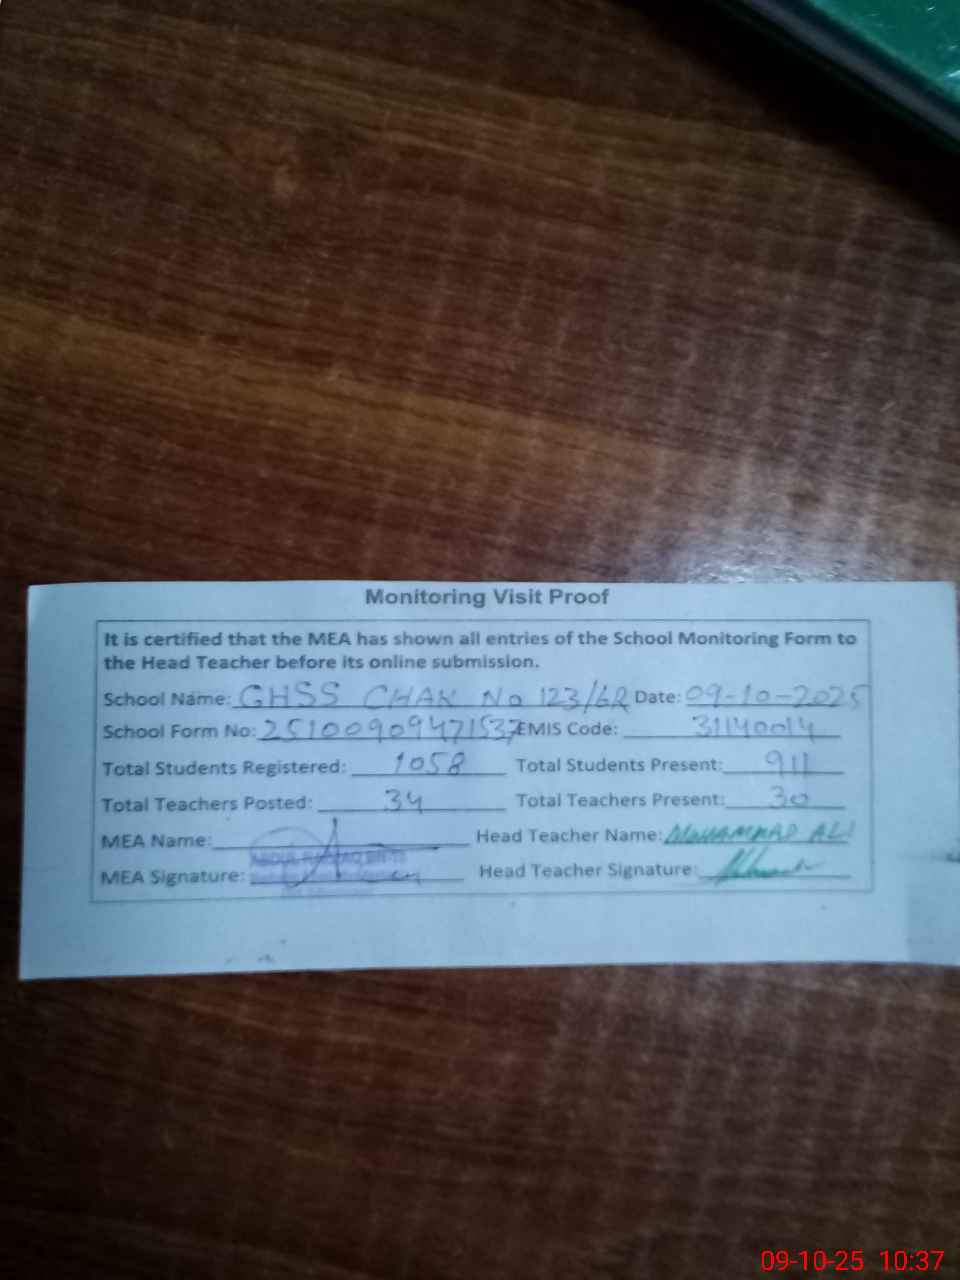 Monitoring Visit Proof
It is certified that the MEA has shown all entries of the School Monitoring Form to
the Head Teacher before its online submission.
School Name: GHSS CHAK No 123/6R Date: 09-10-2025
School Form No: 25100909471537 EMIS Code: 31140014
Total Students Registered: 1058 Total Students Present: 911
Total Teachers Posted: 34 Total Teachers Present: 30
MEA Name: Head Teacher Name: MOHAMMAD ALI
ABDUL
MEA Signature: Head Teacher Signature:
09-10-25 10:37